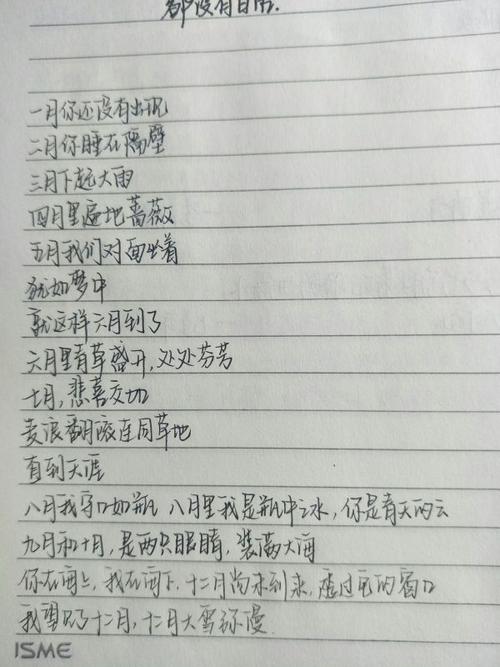 都没有自由.
一月你还没有出现
二月你睡在隔壁
三月下起大雨
四月里遍地蔷薇
五月我们对面坐着
犹如梦中
就这样六月到了
六月里青草盛开,处处芬芳
七月,悲喜交切
麦浪翻滚连同草地
直到天涯
八月我守口如瓶 八月里我是瓶中之水,你是青天的云
九月和十月,是两只眼睛,装满大海
你在海上,我在海下,十二月尚未到来,透过它的窗口
我望见了十二月,十二月大雪弥漫
ISME